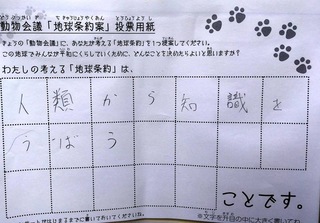 動物会議「地球条約案」投票用紙
きょうの「動物会議」に、あなたが考える「地球条約」を1つ提案してください。
この地球でみんなが平和にくらしていくために、どんなことを決めたらよいと思いますか?
わたしの考える「地球条約」は、
人類から知識を
うばう
ことです。
※文字を升目の中に大きく書いてね